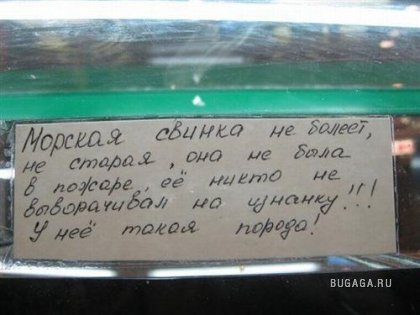 Морская свинка не болеет,
не старая, она не была
в пожаре, её никто не
выворачивал на изнанку!!!
У неё такая порода!
BUGAGA.RU